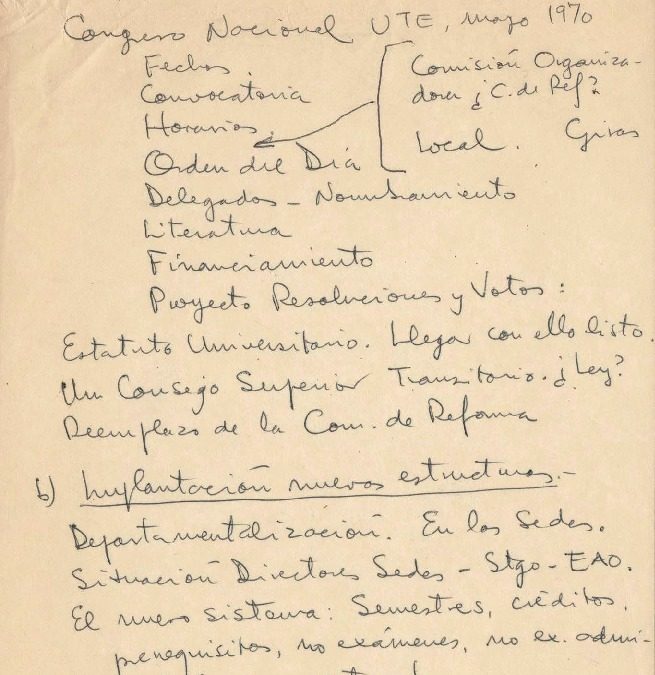 Congreso Nacional UTE, mayo 1970
Fechas.
Convocatoria
Horarios.
Orden del Día
Comisión Organiza-
dora ¿C. de Ref?
Local. Giras
Delegados - Nombramiento
Literatura
Financiamiento
Proyecto Resoluciones y Votos:
Estatuto Universitario. Llegar con ello listo.
Un Consejo Superior Transitorio. ¿Ley?
Reemplazo de la Com. de Reforma
b) Implantación nuevas estructuras.-
Departamentalización. En las Sedes.
Situación Directores Sedes - Stgo - EAO.
El nuevo sistema: Semestres, créditos,
prerequisitos, no exámenes, no ex. admi-